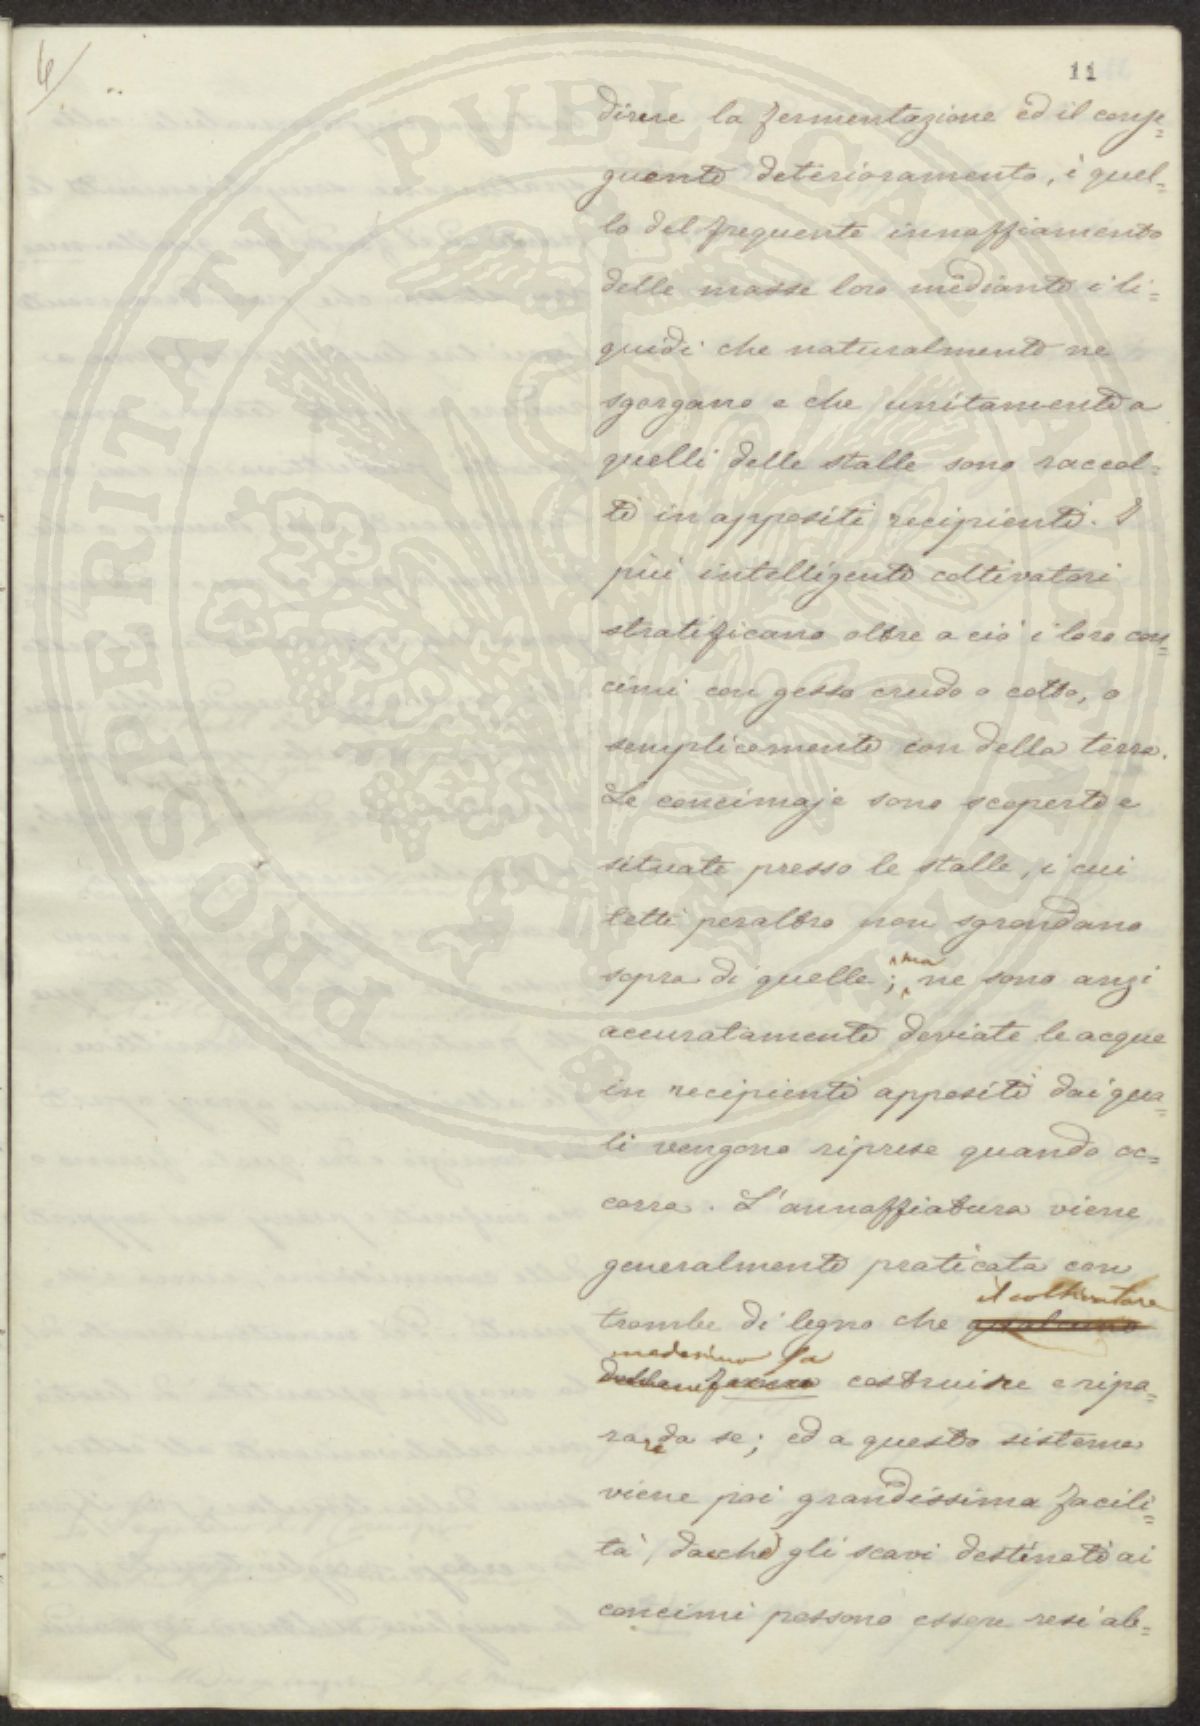 6
11
dirne la fermentazione ed il conse=
guente deterioramento, è quel=
lo del frequente innaffiamento
delle masse loro mediante i li=
quidi che naturalmente ne
sgorgano e che unitamente a
quelli delle stalle sono raccol=
ti in appositi recipienti. I
più intelligenti coltivatori
stratificano oltre a ciò i loro con=
cimi con gesso crudo o cotto, o
semplicemente con della terra.
Le concimaje sono scoperte e
situate presso le stalle, i cui
tetti peraltro non sgrondano
sopra di quelle; ma ne sono anzi
accuratamente deviate le acque
in recipienti appositi dai qua=
li vengono riprese quando oc=
corra. L'annaffiatura viene
generalmente praticata con
il coltivatore
trombe di legno che
medesimo sa
costruire e ripa=
rare da se; ed a questo sistema
viene poi grandissima facili=
tà dacchè gli scavi destinati ai
concimi possono essere resi ab=
PROSPERITATI PVBLICAE AVGENDAE